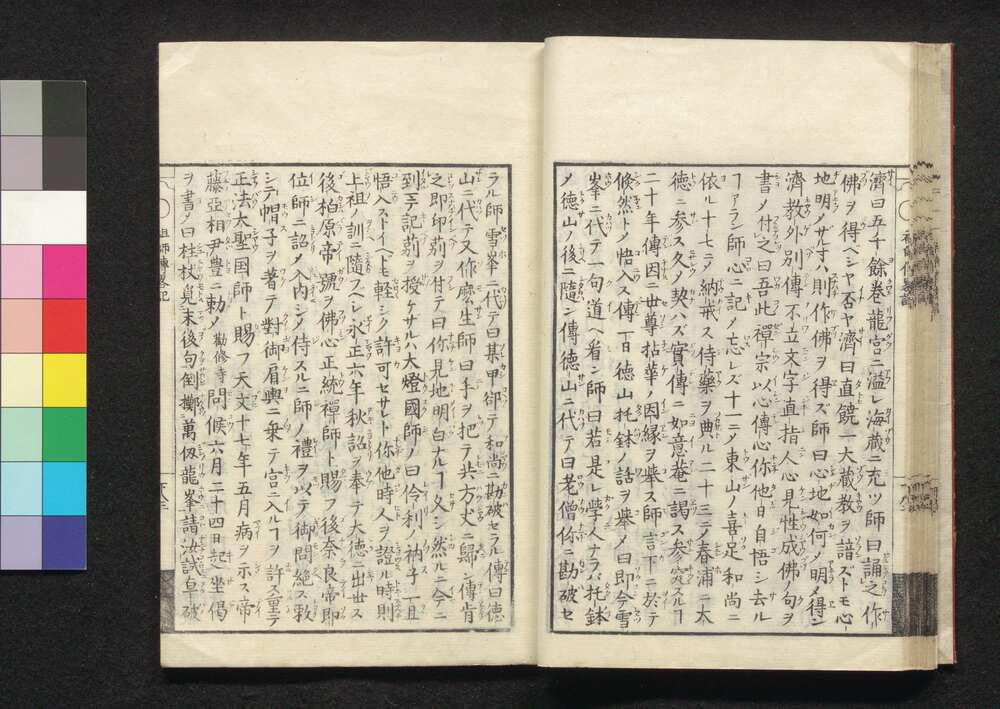 濟曰五千餘巻龍宮ニ溢レ海蔵ニ充ツ師曰誦之作
佛ヲ得ベシヤ否ヤ濟曰直饒一大蔵教ヲ諳ズトモ心
地明ノザル寸ハ則作佛ヲ得ズ師曰心地如何メ明メ得ン
濟教外別傳不立文字直指人心見性成佛句ヲ
書メ付之曰吾此禪宗以心傳心你他日自悟シ去ル
ヿアラン師心ニ記メ忘レズ十一ニメ東山ノ喜足和尚ニ
依ル十七ニメ納戒ス侍藥ヲ典ル二十三ニメ春浦ニ大
德ニ参ス久メ契ハズ實傳ニ如意菴ニ謁ス参究スルヿ
二十年傳因ニ世尊拈華ノ因縁ヲ挙ス師言下ニ於テ
倏然トメ悟入ス傳一日德山托鉢ノ話ヲ挙メ曰即今雪
峯ニ代テ一句道ヘ看ン師曰若是レ學人ナラバ托鉢
メ德山ノ後ニ隨ン傳德山ニ代テ曰老僧你ニ勘破セ
ラル師雪峯ニ代テ曰某甲卻テ和尚ニ勘破セラル傳曰德
山ニ代テ又作麽生師曰手ヲ把テ共方丈ニ歸ン傳肯
之即印莂ヲ付テ曰你見地明白ナルヿ久シ然ルニ今ニ
到テ記莂ヲ授ケサルハ大燈國師ノ曰伶利ノ衲子一旦
悟入ストイヘトモ軽シク許可セサレト你他時人ヲ證ル時則
上祖ノ訓ニ隨フヘレ永正六年秋詔ヲ奉テ大德ニ出世ス
後柏原帝號ヲ佛心正統禪師ト賜フ後奈良帝即
位師ニ詔メ入内シメ侍スルニ師ノ禮ヲ以テ御問絶ス敕
シテ帽子ヲ著テ對御肩輿ニ乗テ宮ニ入ルヿヲ許ス
正法大聖国師ト賜フ天文十七年五月病ヲ示ス帝
藤亞相尹豊ニ勅メ勸修寺問候六月二十四日起坐偈
ヲ書メ曰柱杖覓末後句倒擲ス萬仭龍峯請汝試卓破
祖師傳畧記